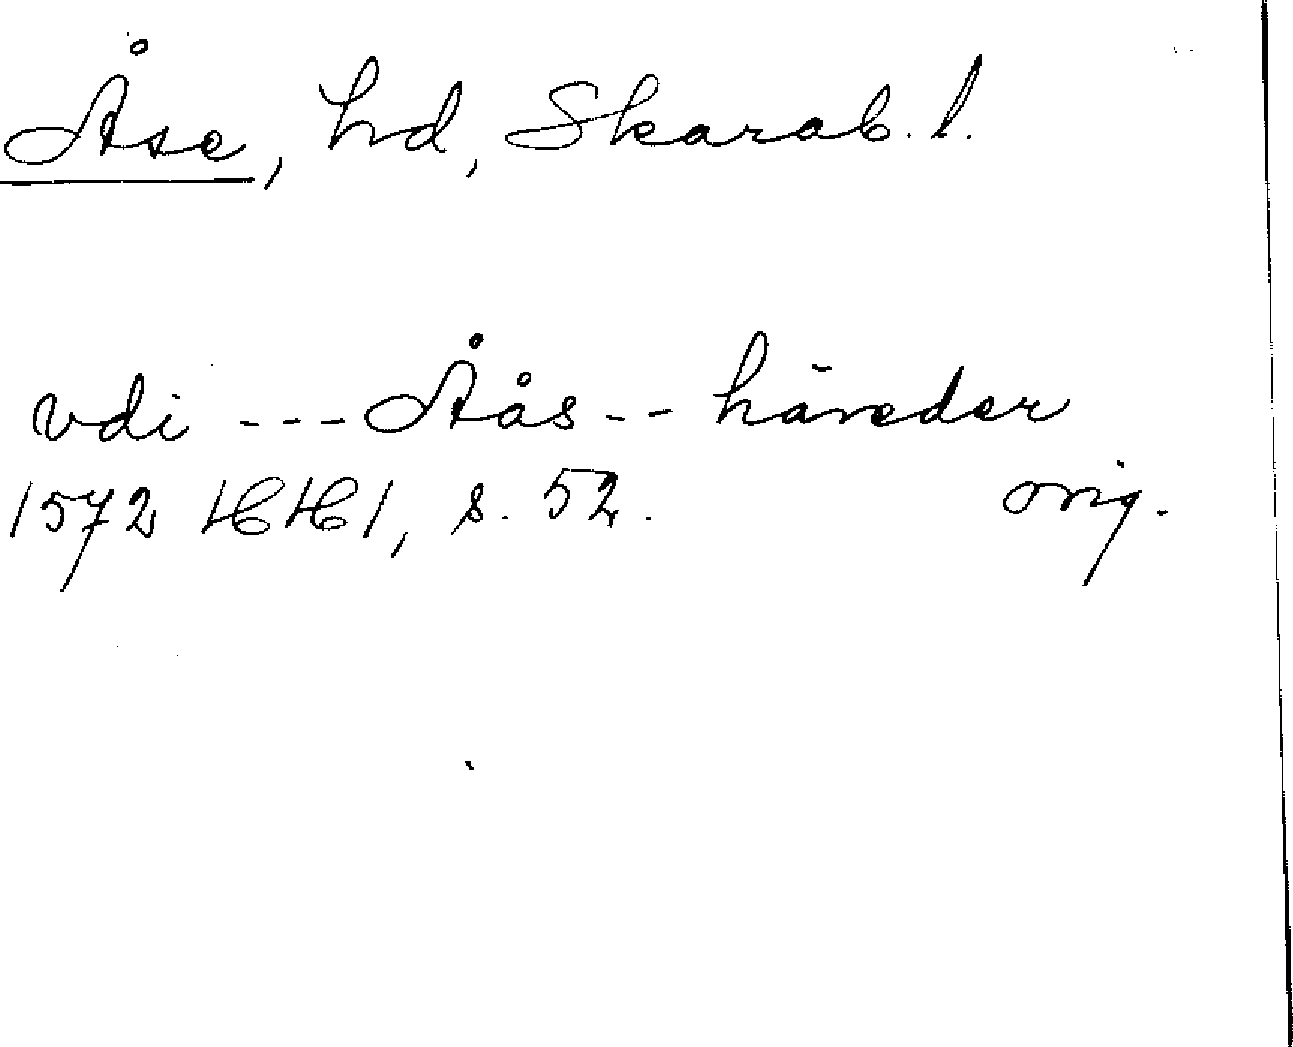 Åse, hd, Skarab. l.
vdi --- Åås -- häreder
1572 HH 1, s. 52. orig.